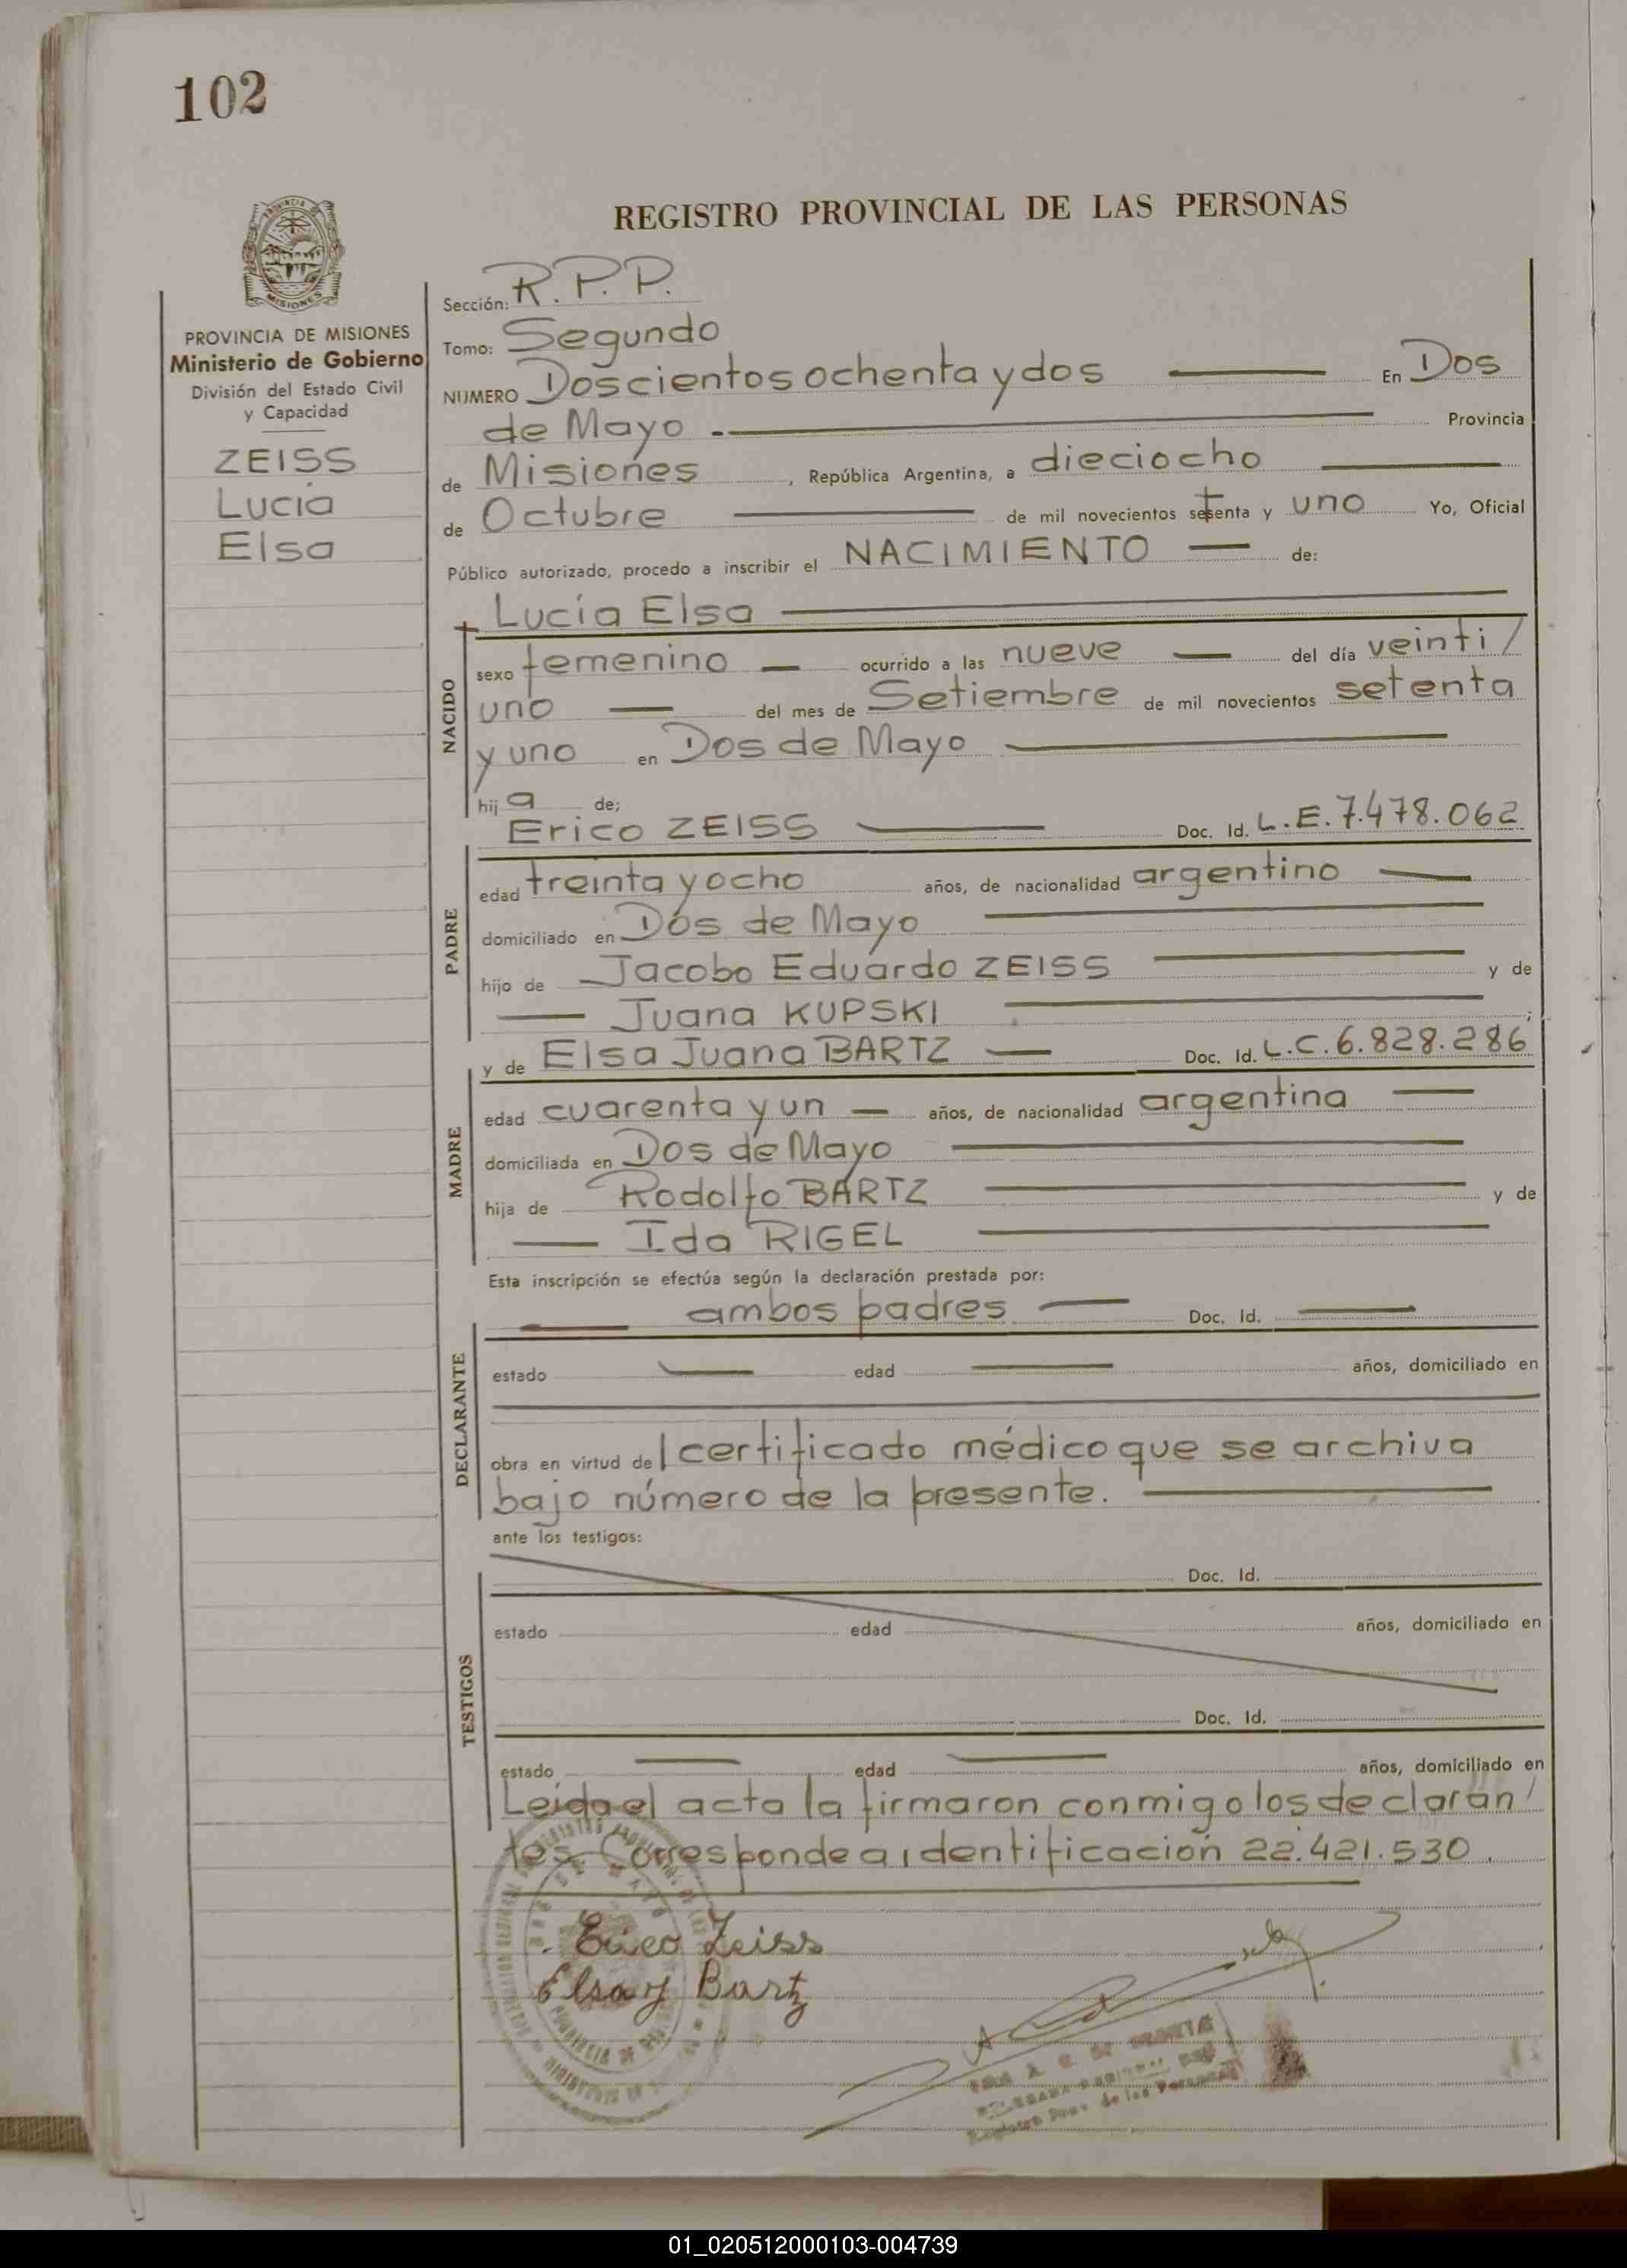 102
REGISTRO PROVINCIAL DE LAS PERSONAS
PROVINCIA DE MISIONES
Ministerio de Gobierno
División del Estado Civil
y Capacidad
ZEISS
Lucía
Elsa
Sección: R.P.P.
Tomo: Segundo
NUMERO Doscientos ochenta y dos — En Dos
de Mayo .— Provincia
de Misiones, República Argentina, a dieciocho —
de Octubre — de mil novecientos setenta y uno Yo, Oficial
Público autorizado, procedo a inscribir el NACIMIENTO — de:
Lucía Elsa —
NACIDO
sexo femenino — ocurrido a las nueve — del día veinti/
uno — del mes de Setiembre de mil novecientos setenta
y uno en Dos de Mayo —
hija de;
Erico ZEISS — Doc. Id. L.E.7.478.062
PADRE
edad treinta y ocho años, de nacionalidad argentino —
domiciliado en Dos de Mayo —
hijo de Jacobo Eduardo ZEISS — y de
— Juana KUPSKI — ;
y de Elsa Juana BARTZ — Doc. Id. L.C.6.828.286
MADRE
edad cuarenta y un — años, de nacionalidad argentina —
domiciliada en Dos de Mayo —
hija de Rodolfo BARTZ — y de
— Ida RIGEL —
Esta inscripción se efectúa según la declaración prestada por:
— ambos padres — Doc. Id. —
DECLARANTE
estado — edad — años, domiciliado en
obra en virtud del certificado médico que se archiva
bajo número de la presente. —
ante los testigos:
TESTIGOS
Doc. Id.
estado edad años, domiciliado en
Doc. Id.
estado — edad — años, domiciliado en
Leida el acta la firmaron conmigo los declaran/
tes. Corresponde a identificación 22.421.530.
Erico Zeiss
Elsa J Bartz
Registro Prov. de las Personas
01_020512000103-004739